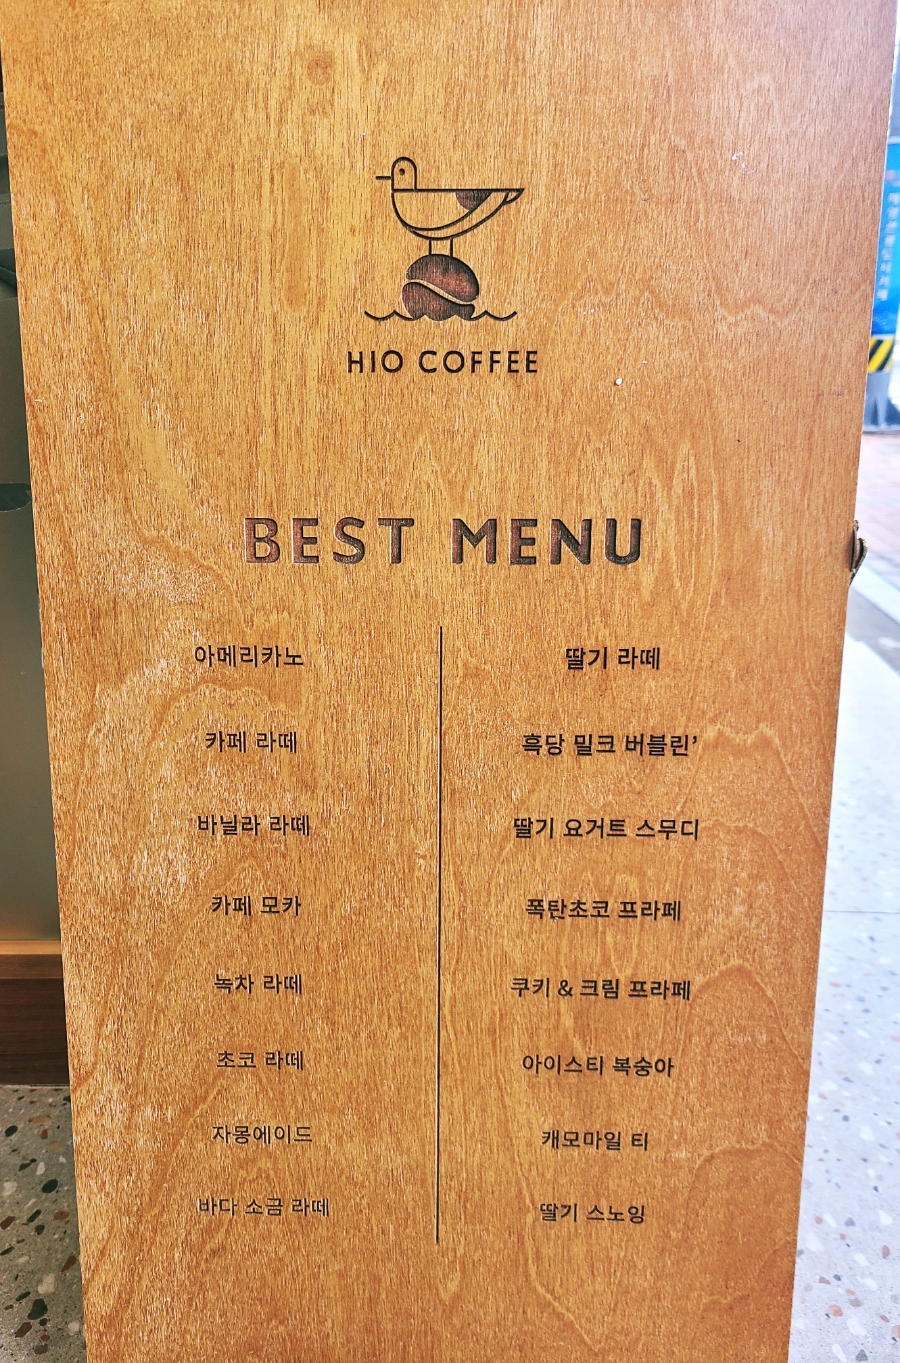 HIO COFFEE
BEST MENU
아메리카노
카페 라떼
바닐라 라떼
카페 모카
녹차 라떼
초코 라떼
자몽에이드
바다 소금 라떼
딸기 라떼
흑당 밀크 버블린’
딸기 요거트 스무디
폭탄초코 프라페
쿠키 & 크림 프라페
아이스티 복숭아
캐모마일 티
딸기 스노잉